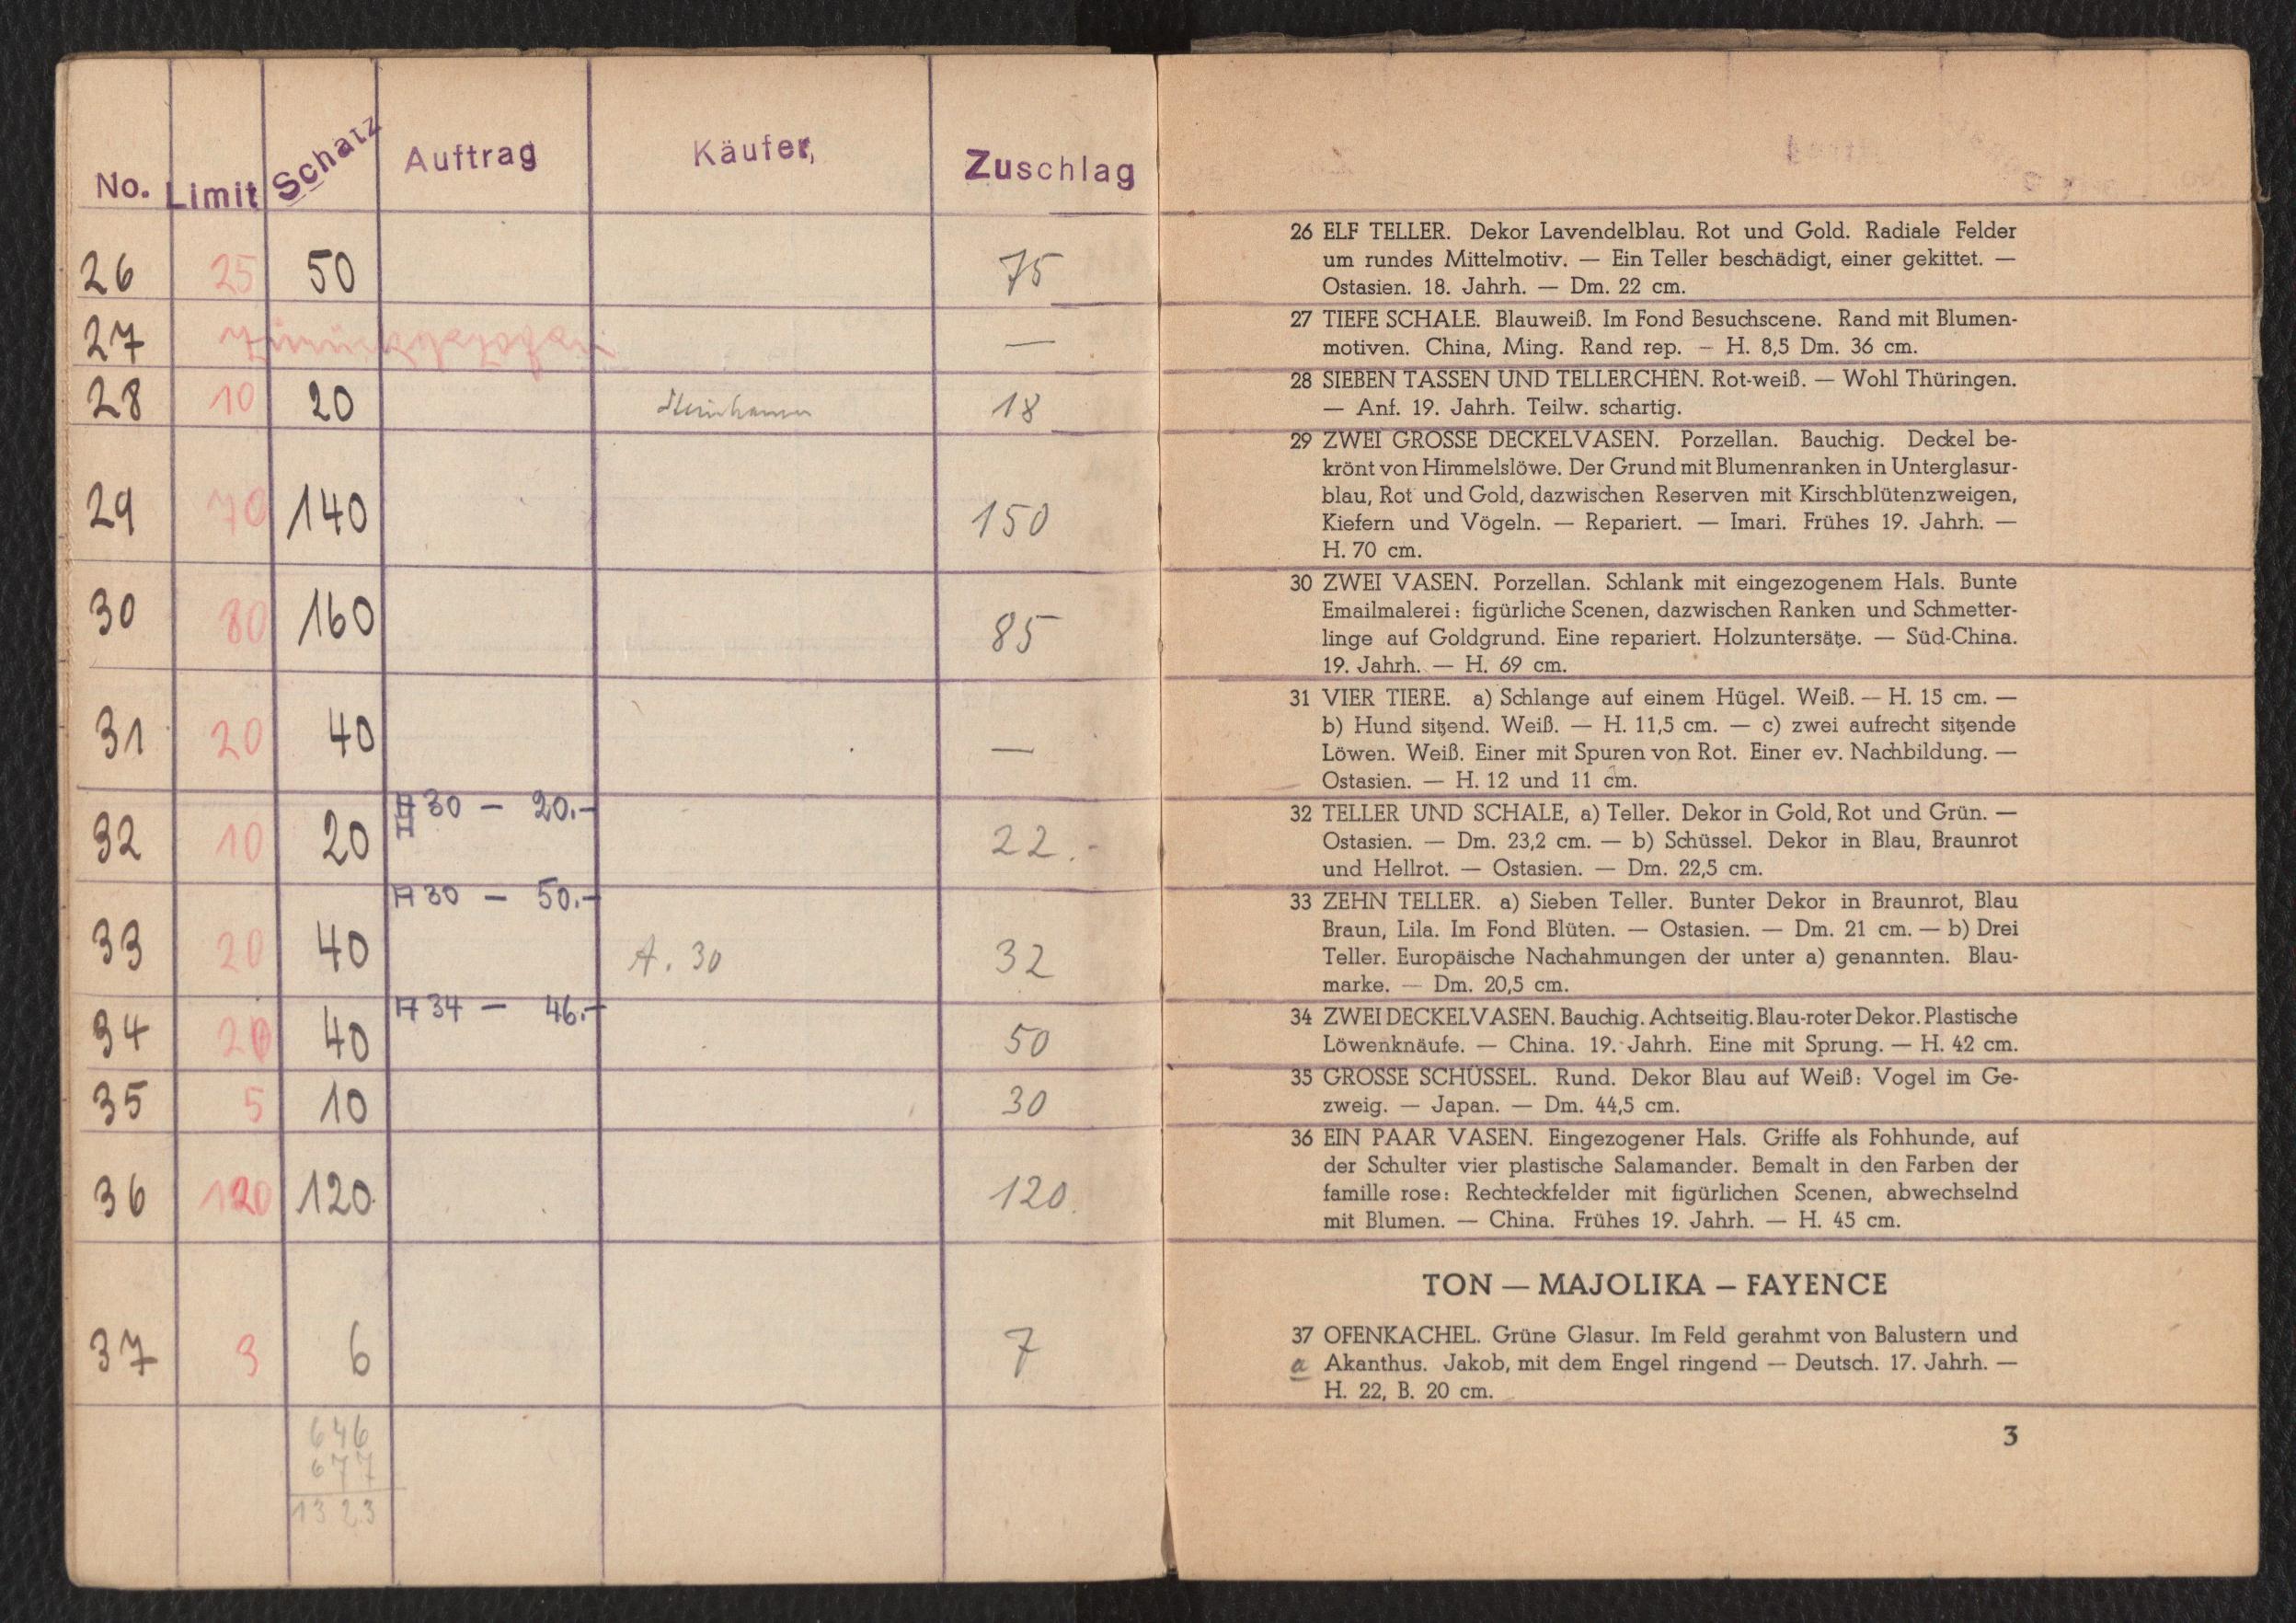 No. Limit Schatz Auftrag Käufer, Zuschlag
26 25 50 75
27 Zurückgezogen —
28 10 20 18
29 70 140 150
30 80 160 85
31 20 40 —
32 10 20 30 — 20.- 22.-
33 20 40 A 30 — 50.- A. 30 32
34 20 40 A 34 — 46.- 50
35 5 10 30
36 120 120 120.
37 3 6 7
646
677
1323
26 ELF TELLER. Dekor Lavendelblau. Rot und Gold. Radiale Felder
um rundes Mittelmotiv. — Ein Teller beschädigt, einer gekittet. —
Ostasien. 18. Jahrh. — Dm. 22 cm.
27 TIEFE SCHALE. Blauweiß. Im Fond Besuchscene. Rand mit Blumen-
motiven. China, Ming. Rand rep. — H. 8,5 Dm. 36 cm.
28 SIEBEN TASSEN UND TELLERCHEN. Rot-weiß. — Wohl Thüringen.
— Anf. 19. Jahrh. Teilw. schartig.
29 ZWEI GROSSE DECKELVASEN. Porzellan. Bauchig. Deckel be-
krönt von Himmelslöwe. Der Grund mit Blumenranken in Unterglasur-
blau, Rot und Gold, dazwischen Reserven mit Kirschblütenzweigen,
Kiefern und Vögeln. — Repariert. — Imari. Frühes 19. Jahrh. —
H. 70 cm.
30 ZWEI VASEN. Porzellan. Schlank mit eingezogenem Hals. Bunte
Emailmalerei: figürliche Scenen, dazwischen Ranken und Schmetter-
linge auf Goldgrund. Eine repariert. Holzuntersätze. — Süd-China.
19. Jahrh. — H. 69 cm.
31 VIER TIERE. a) Schlange auf einem Hügel. Weiß. — H. 15 cm. —
b) Hund sitzend. Weiß. — H. 11,5 cm. — c) zwei aufrecht sitzende
Löwen. Weiß. Einer mit Spuren von Rot. Einer ev. Nachbildung. —
Ostasien. — H. 12 und 11 cm.
32 TELLER UND SCHALE, a) Teller. Dekor in Gold, Rot und Grün. —
Ostasien. — Dm. 23,2 cm. — b) Schüssel. Dekor in Blau, Braunrot
und Hellrot. — Ostasien. — Dm. 22,5 cm.
33 ZEHN TELLER. a) Sieben Teller. Bunter Dekor in Braunrot, Blau
Braun, Lila. Im Fond Blüten. — Ostasien. — Dm. 21 cm. — b) Drei
Teller. Europäische Nachahmungen der unter a) genannten. Blau-
marke. — Dm. 20,5 cm.
34 ZWEI DECKELVASEN. Bauchig. Achtseitig. Blau-roter Dekor. Plastische
Löwenknäufe. — China. 19. Jahrh. Eine mit Sprung. — H. 42 cm.
35 GROSSE SCHÜSSEL. Rund. Dekor Blau auf Weiß: Vogel im Ge-
zweig. — Japan. — Dm. 44,5 cm.
36 EIN PAAR VASEN. Eingezogener Hals. Griffe als Fohhunde, auf
der Schulter vier plastische Salamander. Bemalt in den Farben der
famille rose: Rechteckfelder mit figürlichen Scenen, abwechselnd
mit Blumen. — China. Frühes 19. Jahrh. — H. 45 cm.
TON — MAJOLIKA — FAYENCE
37 OFENKACHEL. Grüne Glasur. Im Feld gerahmt von Balustern und
a Akanthus. Jakob, mit dem Engel ringend — Deutsch. 17. Jahrh. —
H. 22, B. 20 cm.
3